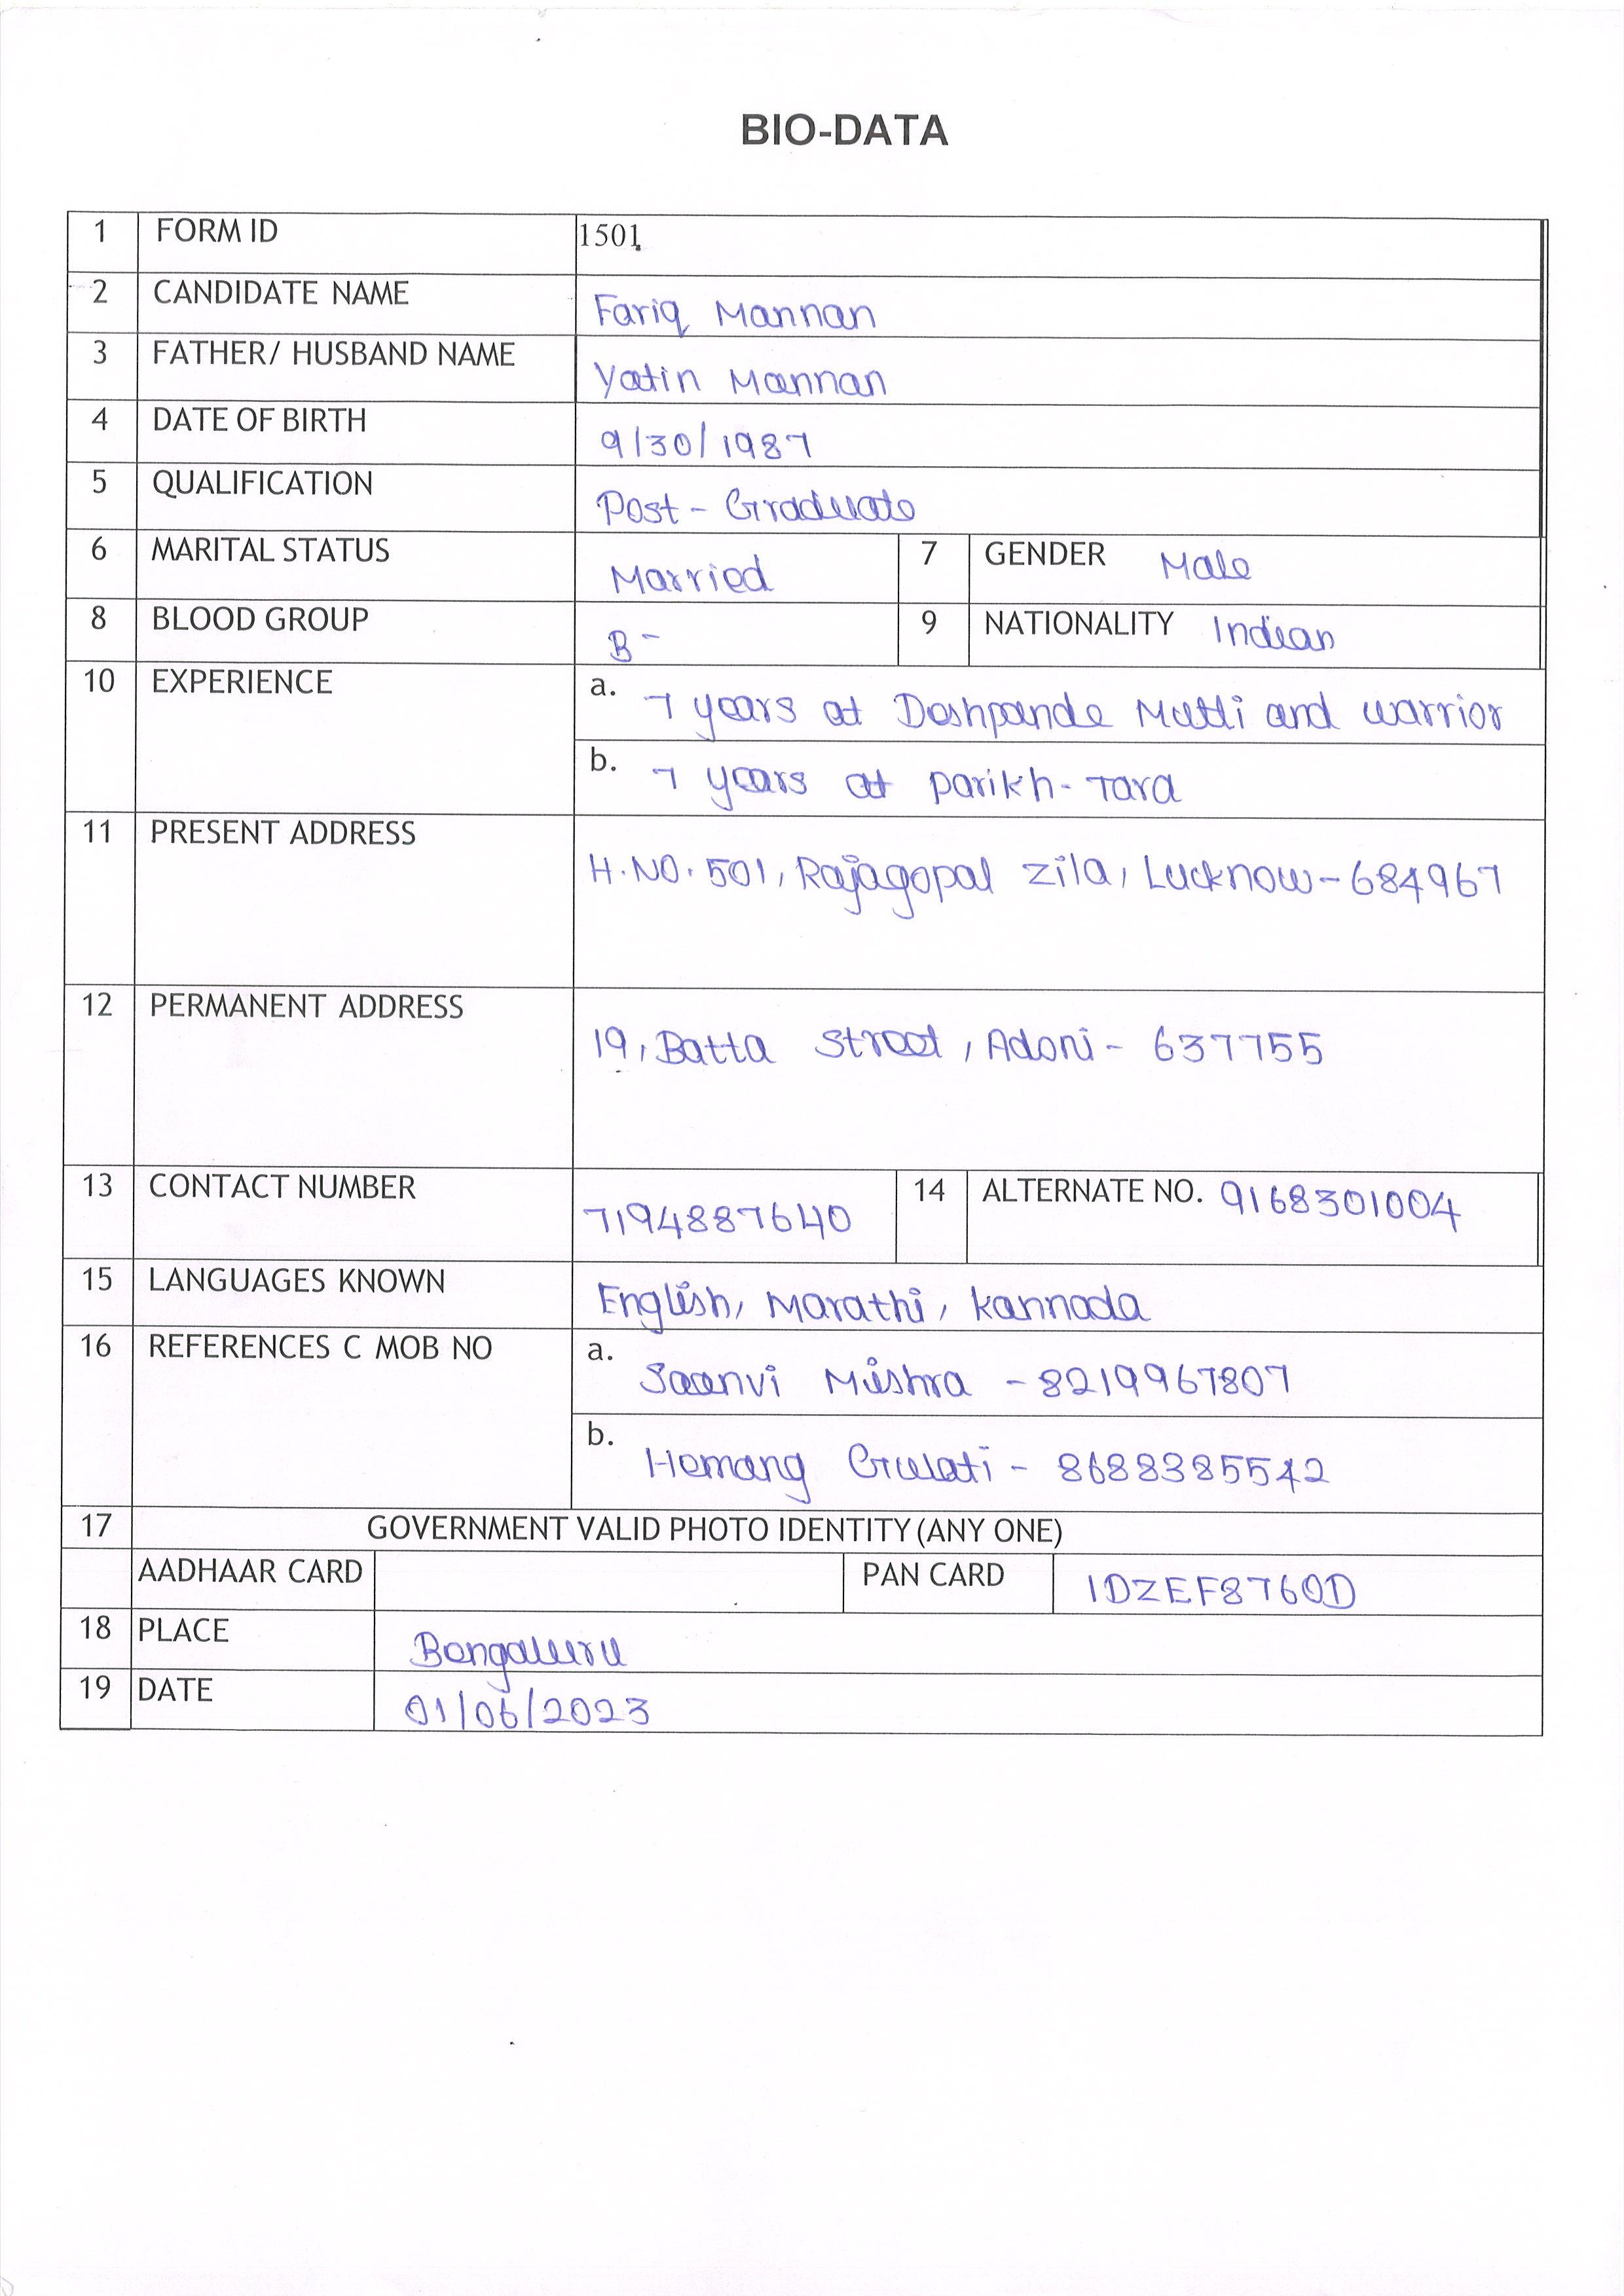 BIO-DATA
1 FORM ID 1501
2 CANDIDATE NAME Fariq Mannan
3 FATHER/ HUSBAND NAME Yatin Mannan
4 DATE OF BIRTH 9/30/1987
5 QUALIFICATION Post-Graduate
6 MARITAL STATUS Married 7 GENDER Male
8 BLOOD GROUP B- 9 NATIONALITY Indian
10 EXPERIENCE a. 7 years at Deshpande Mutti and warrior
b. 7 years at Parikh-Tara
11 PRESENT ADDRESS H.NO. 501, Rajagopal Zila, Lucknow-684967
12 PERMANENT ADDRESS 19, Batta Street, Adoni- 637755
13 CONTACT NUMBER 7194887640 14 ALTERNATE NO. 9168301004
15 LANGUAGES KNOWN English, Marathi, Kannada
16 REFERENCES C MOB NO a. Saanvi Mishra -8219967807
b. Hemang Gulati- 8688385542
17 GOVERNMENT VALID PHOTO IDENTITY (ANY ONE)
AADHAAR CARD PAN CARD IDZEF8760D
18 PLACE Bengaluru
19 DATE 01/06/2023